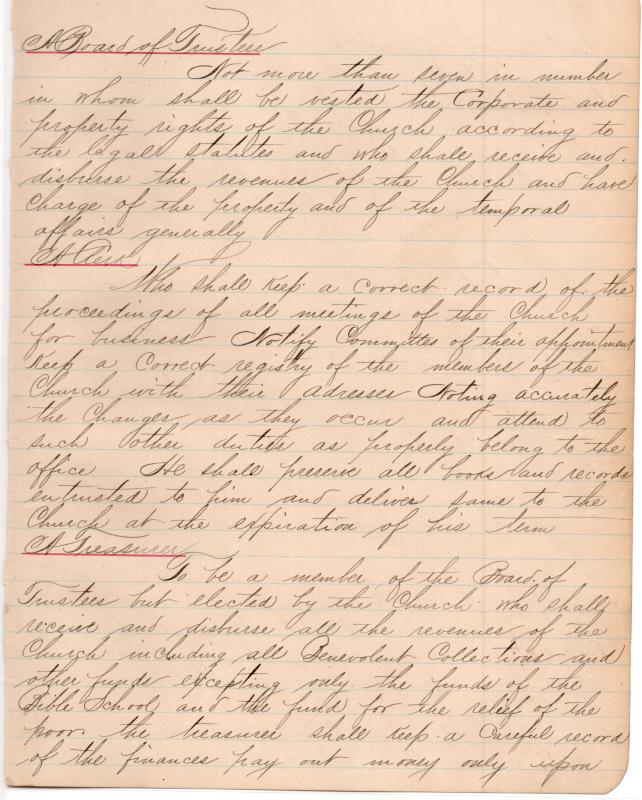 A Board of Trustees
Not more than seven in number
in whom shall be vested the Corporate and
property rights of the Church according to
the legal statutes and who shall receive and
disburse the revenues of the Church and have
Charge of the property and of the temporal
affairs generally
A Clerk
Who shall keep a correct record of the
proceedings of all meetings of the Church
for business Notify Committes of their appointment
Keep a Correct registry of the members of the
Church with their adresses Noting accurately
the Changes as they occur and attend to
such other duties as properly belong to the
office He shall preserve all books and records
entrusted to him and deliver same to the
Church at the expiration of his Term
A Treasurer
To be a member of the Board of
Trustees but elected by the Church who shall
receive and disburse all the revenues of the
Church including all Benevolent Collections and
other funds excepting only the funds of the
Bible School and the fund for the relief of the
poor. the treasurer shall Keep a Careful record
of the finances pay out money only upon